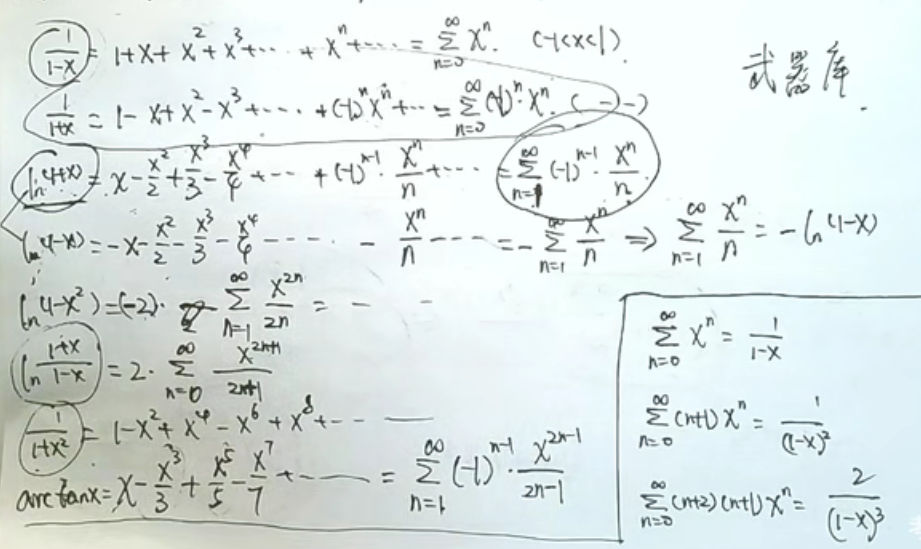 1/(1-x) = 1+x+x²+x³+⋯+xⁿ+⋯ = ∑_{n=0}^{∞} xⁿ. (-1<x<1)
武器库.
1/(1+x) = 1-x+x²-x³+⋯+(-1)ⁿxⁿ+⋯ = ∑_{n=0}^{∞} (-1)ⁿ·xⁿ. (--)
ln(1+x) = x - x²/2 + x³/3 - x⁴/4 + ⋯ + (-1)^{n-1}·xⁿ/n + ⋯ = ∑_{n=1}^{∞} (-1)^{n-1}·xⁿ/n
ln(1-x) = -x - x²/2 - x³/3 - x⁴/4 - ⋯ - xⁿ/n - ⋯ = -∑_{n=1}^{∞} xⁿ/n ⇒ ∑_{n=1}^{∞} xⁿ/n = -ln(1-x)
ln(1-x²) = (-2)· ∑_{n=1}^{∞} x^{2n}/2n = - -
ln (1+x)/(1-x) = 2·∑_{n=0}^{∞} x^{2n+1}/(2n+1)
1/(1+x²) = 1-x²+x⁴-x⁶+x⁸+⋯ —
arctanx = x - x³/3 + x⁵/5 - x⁷/7 + ⋯ = ∑_{n=1}^{∞} (-1)^{n-1}·x^{2n-1}/(2n-1)
∑_{n=0}^{∞} xⁿ = 1/(1-x)
∑_{n=0}^{∞} (n+1)xⁿ = 1/(1-x)²
∑_{n=0}^{∞} (n+2)(n+1)xⁿ = 2/(1-x)³